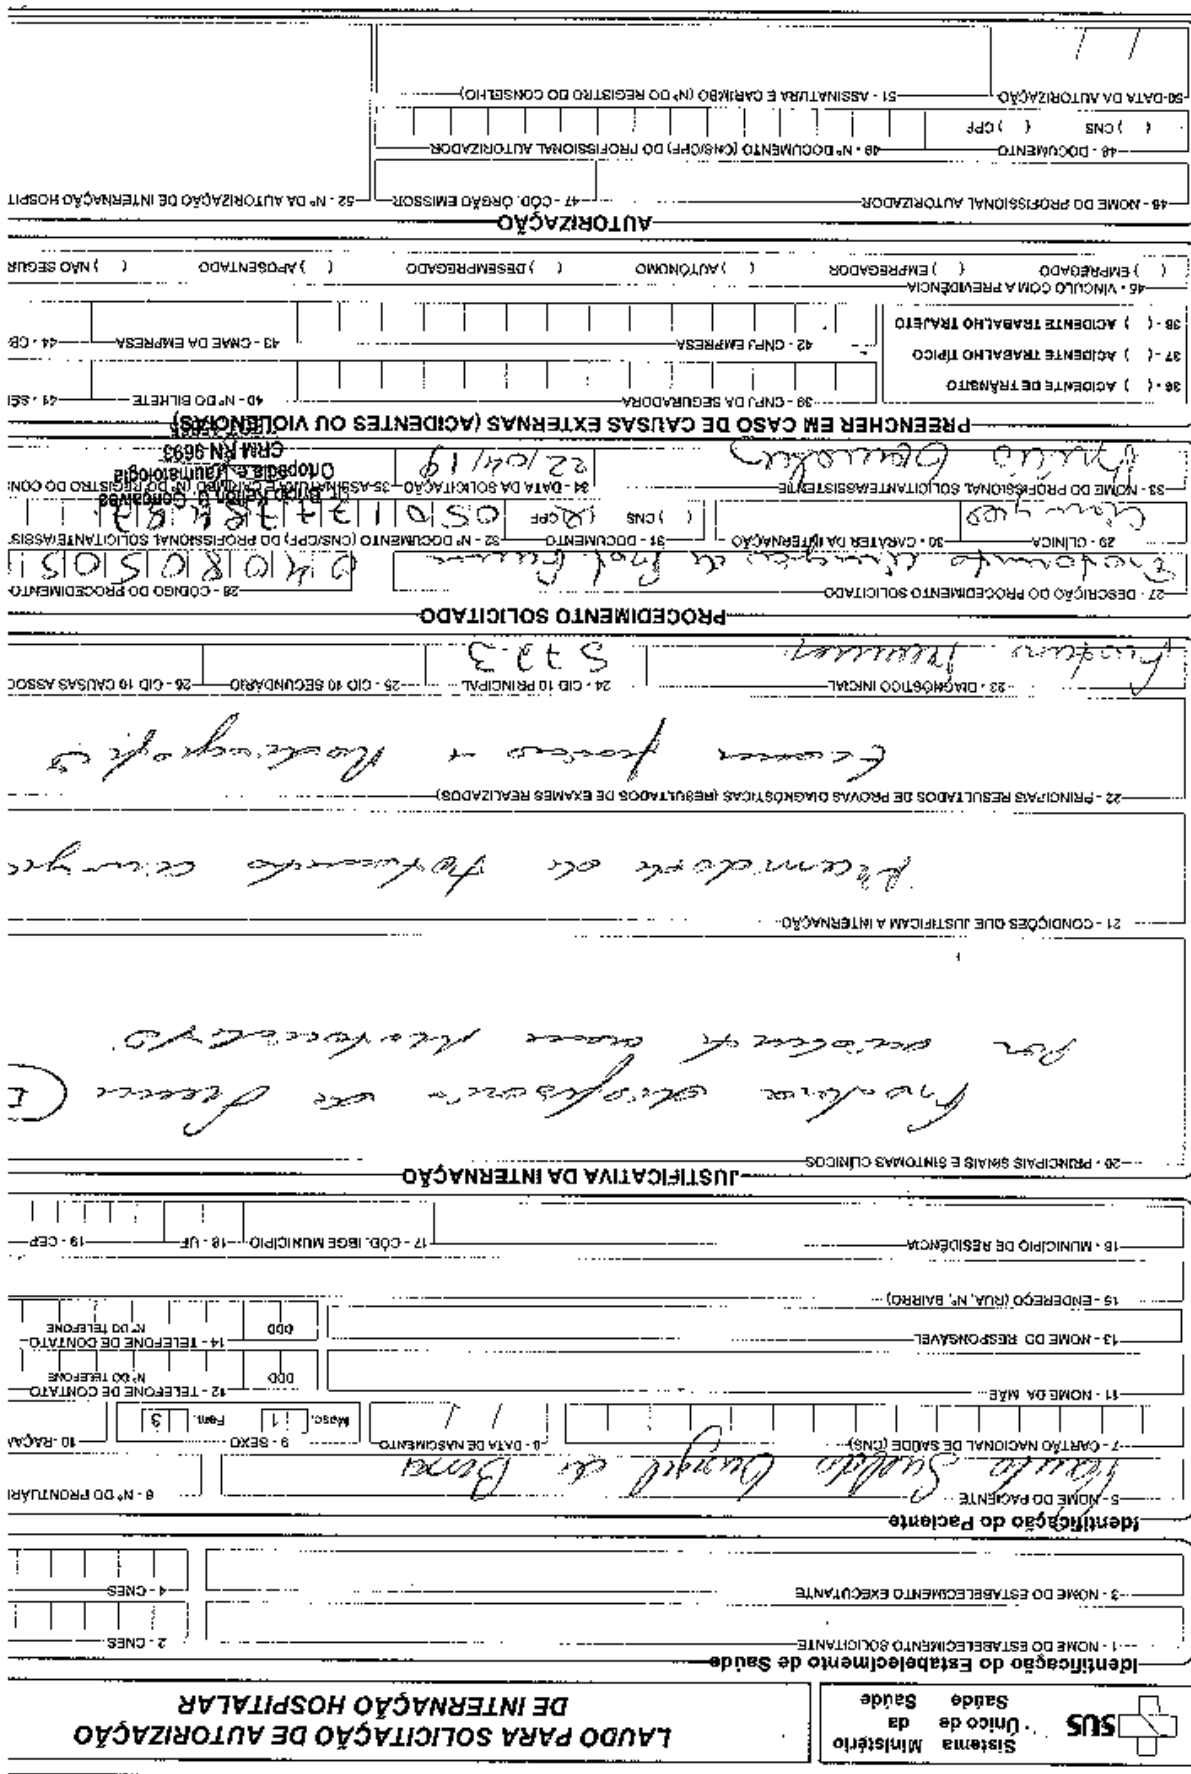 SUS
Sistema Único de Saúde
Ministério da Saúde
LAUDO PARA SOLICITAÇÃO DE AUTORIZAÇÃO
DE INTERNAÇÃO HOSPITALAR
Identificação do Estabelecimento de Saúde
1 - NOME DO ESTABELECIMENTO SOLICITANTE
2 - CNES
3 - NOME DO ESTABELECIMENTO EXECUTANTE
4 - CNES
Identificação do Paciente
5 - NOME DO PACIENTE
6 - Nº DO PRONTUÁRI
7 - CARTÃO NACIONAL DE SAÚDE (CNS)
8 - DATA DE NASCIMENTO
/ /
9 - SEXO
Masc. 1 Fem. 3
10 - RAÇA
11 - NOME DA MÃE
12 - TELEFONE DE CONTATO
DDD Nº DO TELEFONE
13 - NOME DO RESPONSÁVEL
14 - TELEFONE DE CONTATO
DDD Nº DO TELEFONE
15 - ENDEREÇO (RUA, Nº, BAIRRO)
16 - MUNICÍPIO DE RESIDÊNCIA
17 - CÓD. IBGE MUNICÍPIO
18 - UF
19 - CEP
JUSTIFICATIVA DA INTERNAÇÃO
20 - PRINCIPAIS SINAIS E SINTOMAS CLÍNICOS
Fratura diafisaria de femur E
Por acidente
21 - CONDIÇÕES QUE JUSTIFICAM A INTERNAÇÃO
de tratamento
22 - PRINCIPAIS RESULTADOS DE PROVAS DIAGNÓSTICAS (RESULTADOS DE EXAMES REALIZADOS)
Exame fisico + Radiografia
23 - DIAGNÓSTICO INICIAL
24 - CID 10 PRINCIPAL
S 72.3
25 - CID 10 SECUNDÁRIO
26 - CID 10 CAUSAS ASSOC
PROCEDIMENTO SOLICITADO
27 - DESCRIÇÃO DO PROCEDIMENTO SOLICITADO
28 - CÓDIGO DO PROCEDIMENTO
04080505
29 - CLÍNICA
30 - CARATER DA INTERNAÇÃO
31 - DOCUMENTO
( ) CNS ( ) CPF
32 - Nº DOCUMENTO (CNS/CPF) DO PROFISSIONAL SOLICITANTE/ASSIS
33 - NOME DO PROFISSIONAL SOLICITANTE/ASSISTENTE
34 - DATA DA SOLICITAÇÃO
22/04/19
35 - ASSINATURA E CARIMBO (Nº DO REGISTRO DO CON
Ortopedia e Traumatologia
CRM RN 9693
PREENCHER EM CASO DE CAUSAS EXTERNAS (ACIDENTES OU VIOLÊNCIAS)
36 - ( ) ACIDENTE DE TRÂNSITO
37 - ( ) ACIDENTE TRABALHO TÍPICO
38 - ( ) ACIDENTE TRABALHO TRAJETO
39 - CNPJ DA SEGURADORA
40 - Nº DO BILHETE
41 - SÉ
42 - CNPJ EMPRESA
43 - CNAE DA EMPRESA
44 - CB
45 - VINCULO COM A PREVIDÊNCIA
( ) EMPREGADO ( ) EMPREGADOR ( ) AUTÔNOMO ( ) DESEMPREGADO ( ) APOSENTADO ( ) NÃO SEGUR
AUTORIZAÇÃO
46 - NOME DO PROFISSIONAL AUTORIZADOR
47 - CÓD. ÓRGÃO EMISSOR
52 - Nº DA AUTORIZAÇÃO DE INTERNAÇÃO HOSPIT
48 - DOCUMENTO
( ) CNS ( ) CPF
49 - Nº DOCUMENTO (CNS/CPF) DO PROFISSIONAL AUTORIZADOR
50 - DATA DA AUTORIZAÇÃO
/ /
51 - ASSINATURA E CARIMBO (Nº DO REGISTRO DO CONSELHO)